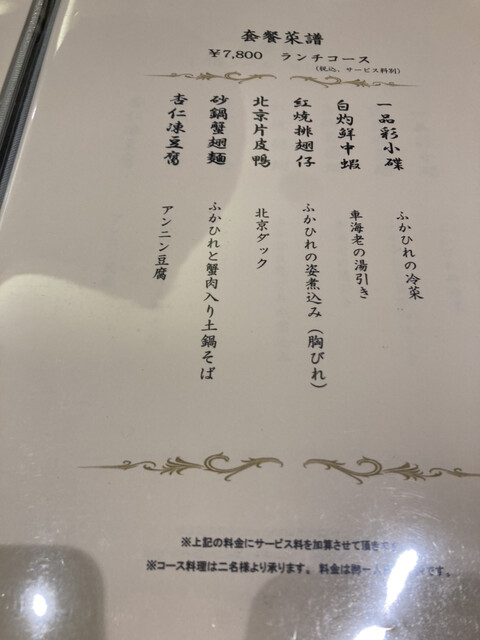 套餐菜譜
¥7,800 ランチコース
(税込、サービス料別)
一品彩小碟
白灼鮮中蝦
紅燒排翅仔
北京片皮鴨
砂鍋蟹翅麺
杏仁凍豆腐
ふかひれの冷菜
車海老の湯引き
ふかひれの姿煮込み(胸びれ)
北京ダック
ふかひれと蟹肉入り土鍋そば
アンニン豆腐
※上記の料金にサービス料を加算させて頂きます
※コース料理は二名様より承ります。料金は御一人 です。